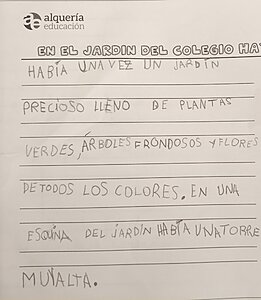 alquería
educación
EN EL JARDIN DEL COLEGIO HA
HABÍA UNAVEZ UN JARDÍN
PRECIOSO LLENO DE PLANTAS
VERDES, ÁRBOLES FRONDOSOS Y FLORES
DETODOS LOS COLORES. EN UNA
ESQUINA DEL JARDÍN HABÍA UNATORRE
MUYALTA.